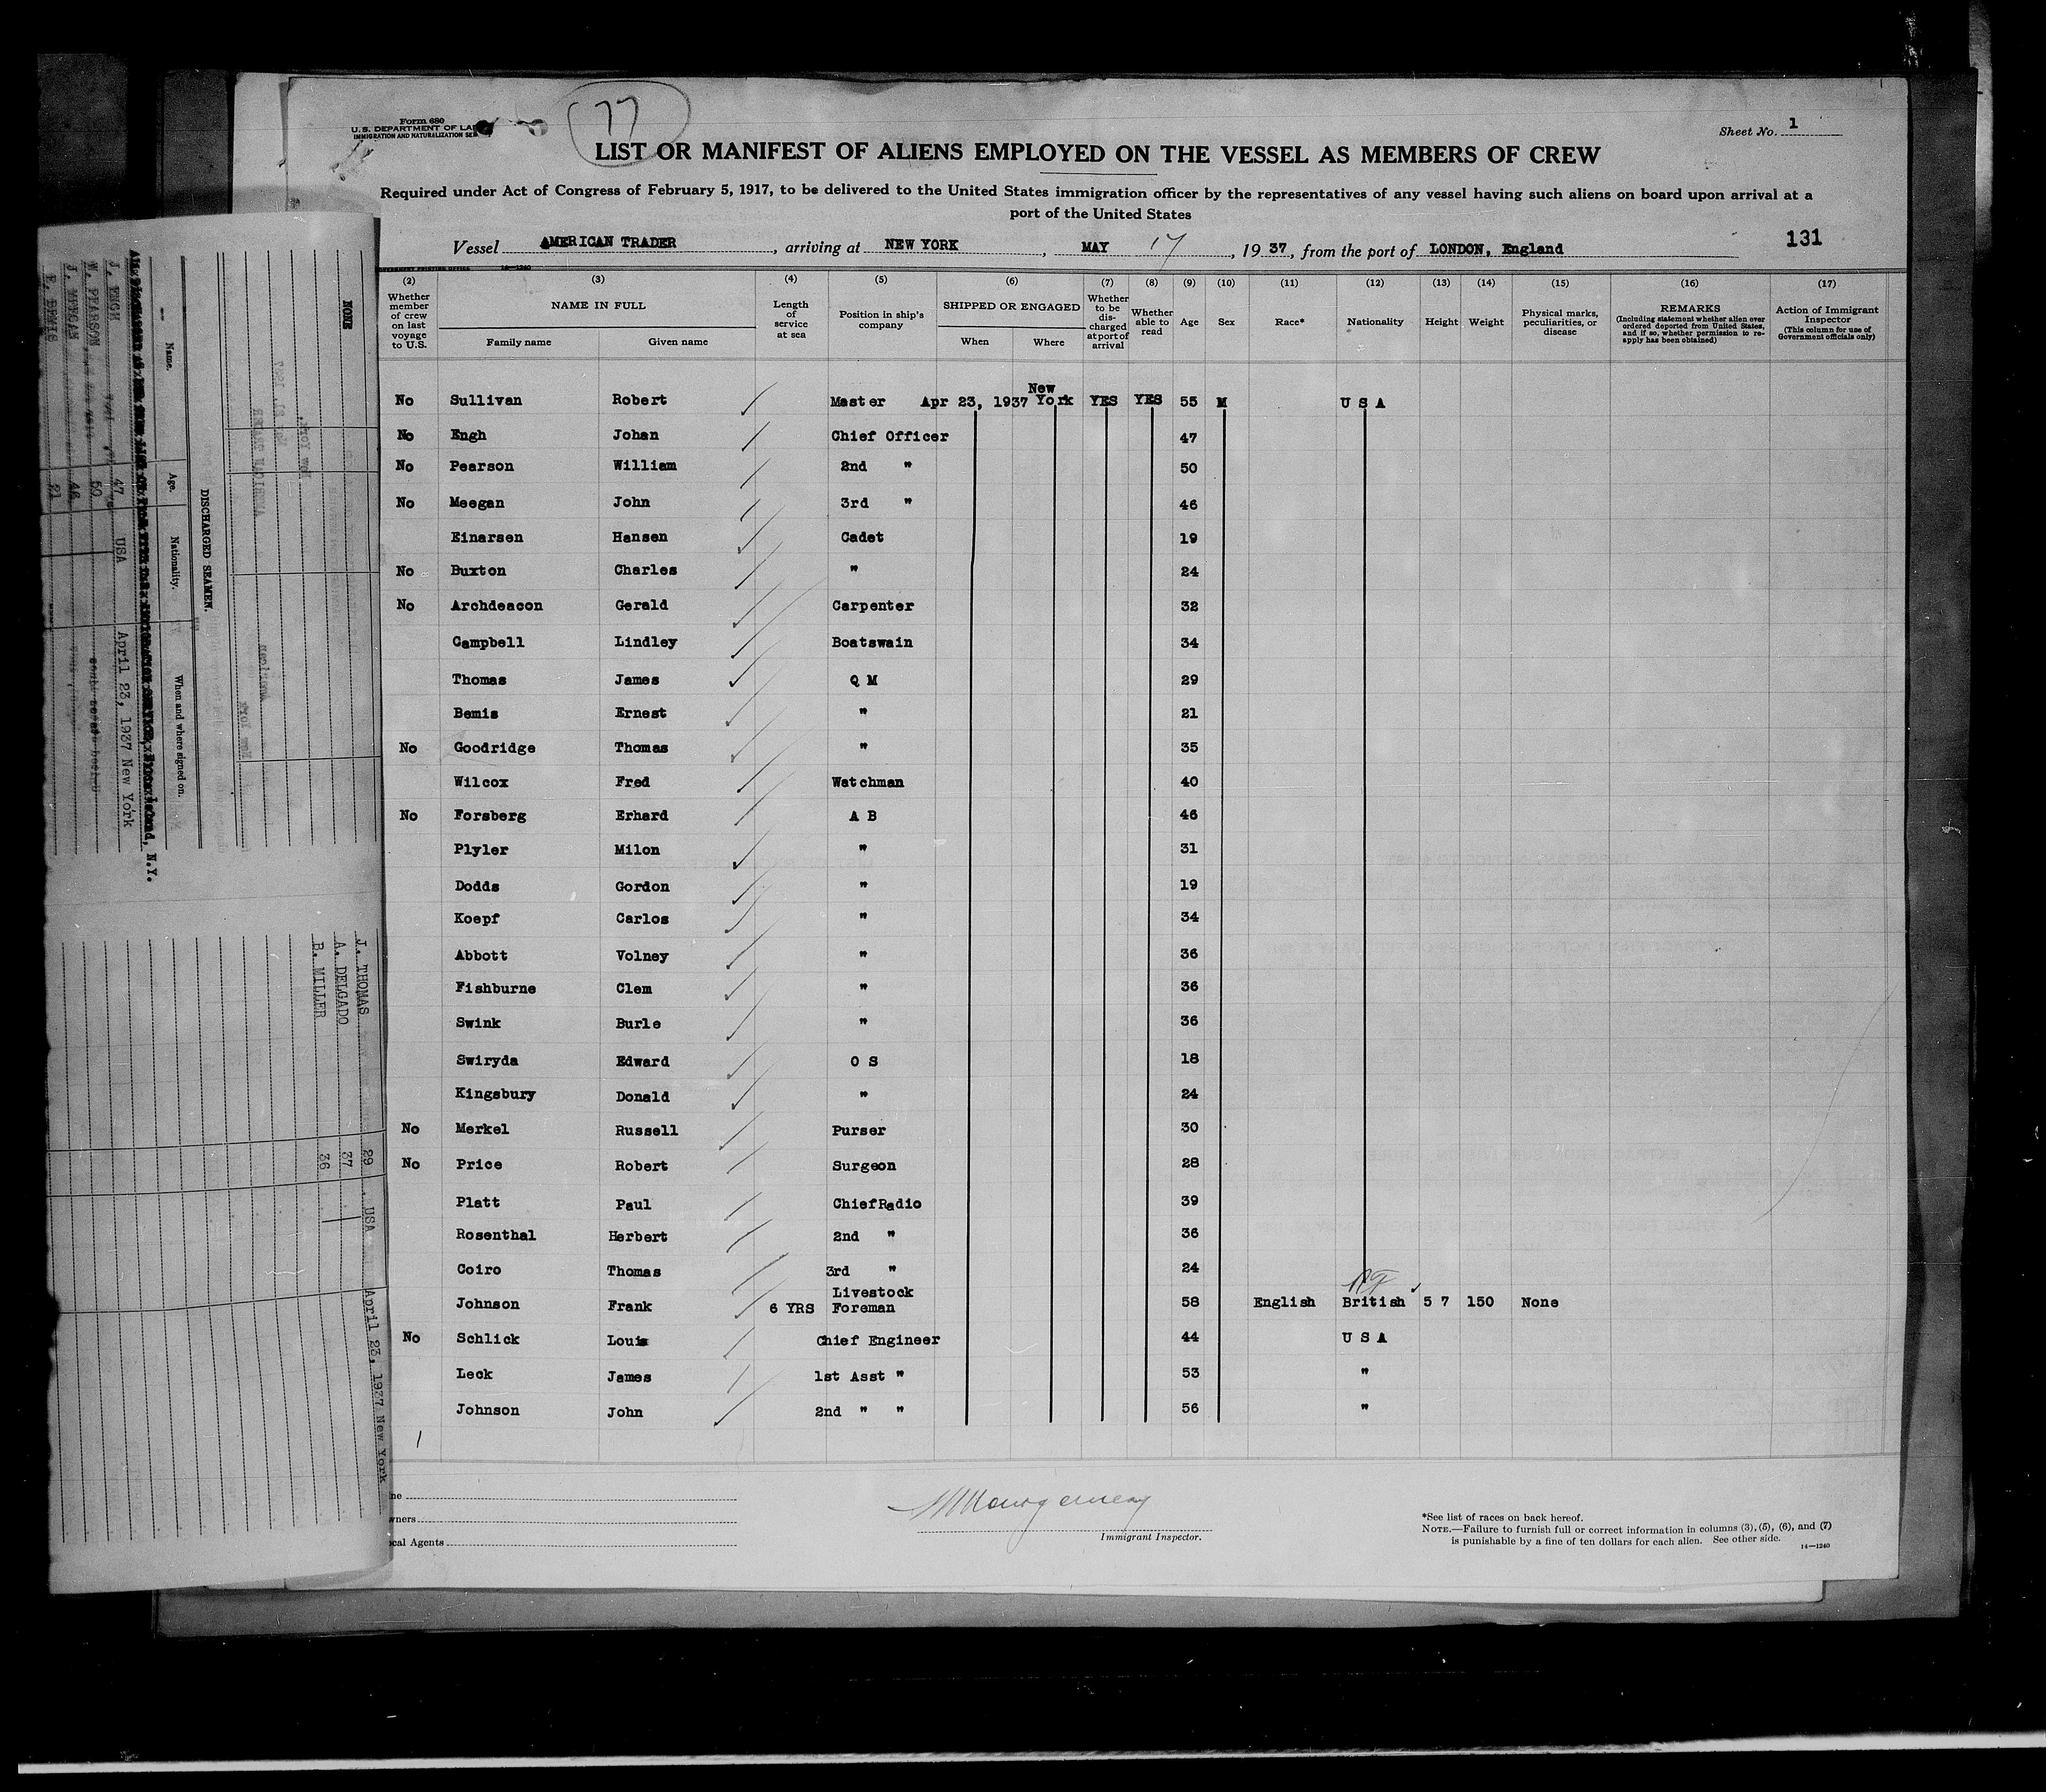 77
Form 680
U. S. DEPARTMENT OF LA
IMMIGRATION AND NATURALIZATION SE
Sheet No. 1
LIST OR MANIFEST OF ALIENS EMPLOYED ON THE VESSEL AS MEMBERS OF CREW
Required under Act of Congress of February 5, 1917, to be delivered to the United States immigration officer by the representatives of any vessel having such aliens on board upon arrival at a
port of the United States
Vessel AMERICAN TRADER, arriving at NEW YORK, MAY 17, 1937, from the port of LONDON, England
131
(2) (3) (4) (5) (6) (7) (8) (9) (10) (11) (12) (13) (14) (15) (16) (17)
Whether member of crew on last voyage to U.S.
NAME IN FULL
Family name Given name
Length of service at sea
Position in ship's company
SHIPPED OR ENGAGED
When Where
Whether to be discharged at port of arrival
Whether able to read
Age
Sex
Race*
Nationality
Height
Weight
Physical marks, peculiarities, or disease
REMARKS
(Including statement whether alien ever ordered deported from United States, and if so, whether permission to reapply has been obtained)
Action of Immigrant Inspector
(This column for use of Government officials only)
No Sullivan Robert Master Apr 23, 1937 New York YES YES 55 M U S A
No Engh Johan Chief Officer 47
No Pearson William 2nd " 50
No Meegan John 3rd " 46
Einarsen Hansen Cadet 19
No Buxton Charles " 24
No Archdeacon Gerald Carpenter 32
Campbell Lindley Boatswain 34
Thomas James Q M 29
Bemis Ernest " 21
No Goodridge Thomas " 35
Wilcox Fred Watchman 40
No Forsberg Erhard A B 46
Plyler Milon " 31
Dodds Gordon " 19
Koepf Carlos " 34
Abbott Volney " 36
Fishburne Clem " 36
Swink Burle " 36
Swiryda Edward O S 18
Kingsbury Donald " 24
No Merkel Russell Purser 30
No Price Robert Surgeon 28
Platt Paul Chief Radio 39
Rosenthal Herbert 2nd " 36
Coiro Thomas 3rd " 24
Johnson Frank 6 YRS Livestock Foreman 58 English British 5 7 150 None
No Schlick Louis Chief Engineer 44 U S A
Leck James 1st Asst " 53 "
Johnson John 2nd " " 56 "
1
wners
cal Agents
Immigrant Inspector.
*See list of races on back hereof.
NOTE.—Failure to furnish full or correct information in columns (3), (5), (6), and (7)
is punishable by a fine of ten dollars for each alien. See other side.
14—1240
NONE
DISCHARGED SEAMEN.
Name. Age. Nationality. When and where signed on.
J. ENGH 47 USA April 23, 1937 New York
W. PEARSON 50
J. MEEGAN 46
E. BEMIS 21
J. THOMAS 29 USA April 23, 1937 New York
A. DELGADO 37
B. MILLER 36